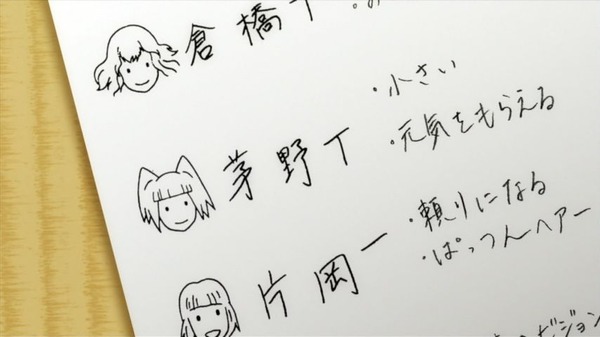 倉橋T
・小さい
茅野T
・元気をもらえる
片岡一
・頼りになる
・ぱっつんヘアー
ビジョン